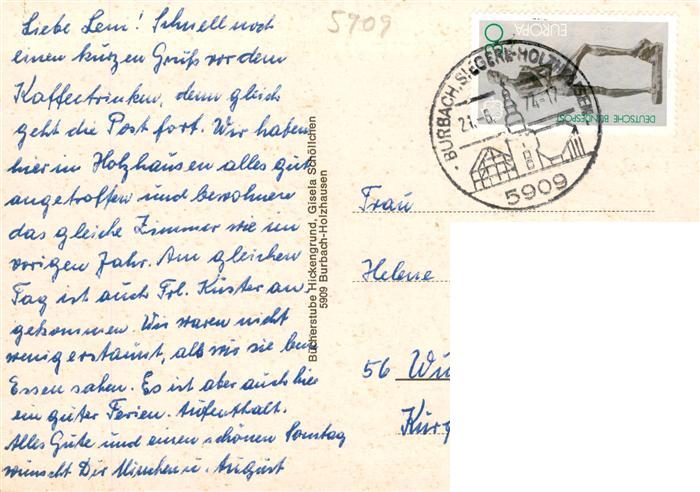 5909
Liebe Leni! Schnell noch
einen kurzen Gruß vor dem
Kaffeetrinken, denn gleich
geht die Post fort. Wir haben
hier in Holzhausen alles gut
angetroffen und bewohnen
das gleiche Zimmer wie im
vorigen Jahr. Am gleichen
Tag ist auch Frl. Küster an,
gekommen. Wir waren nicht
wenig erstaunt, als wir sie beim
Essen sahen. Es ist aber auch hier
ein guter Ferien-Aufenthalt.
Alles Gute und einen schönen Sonntag
wünscht Dir Minchen u. August
Bücherstube Hickengrund, Gisela Schöllchen
5909 Burbach-Holzhausen
EUROPA
DEUTSCHE BUNDESPOST
BURBACH, SIEGERL.-HOLZHAUSEN
74-17
5909
Frau
Helene
56 Wu
Kurz